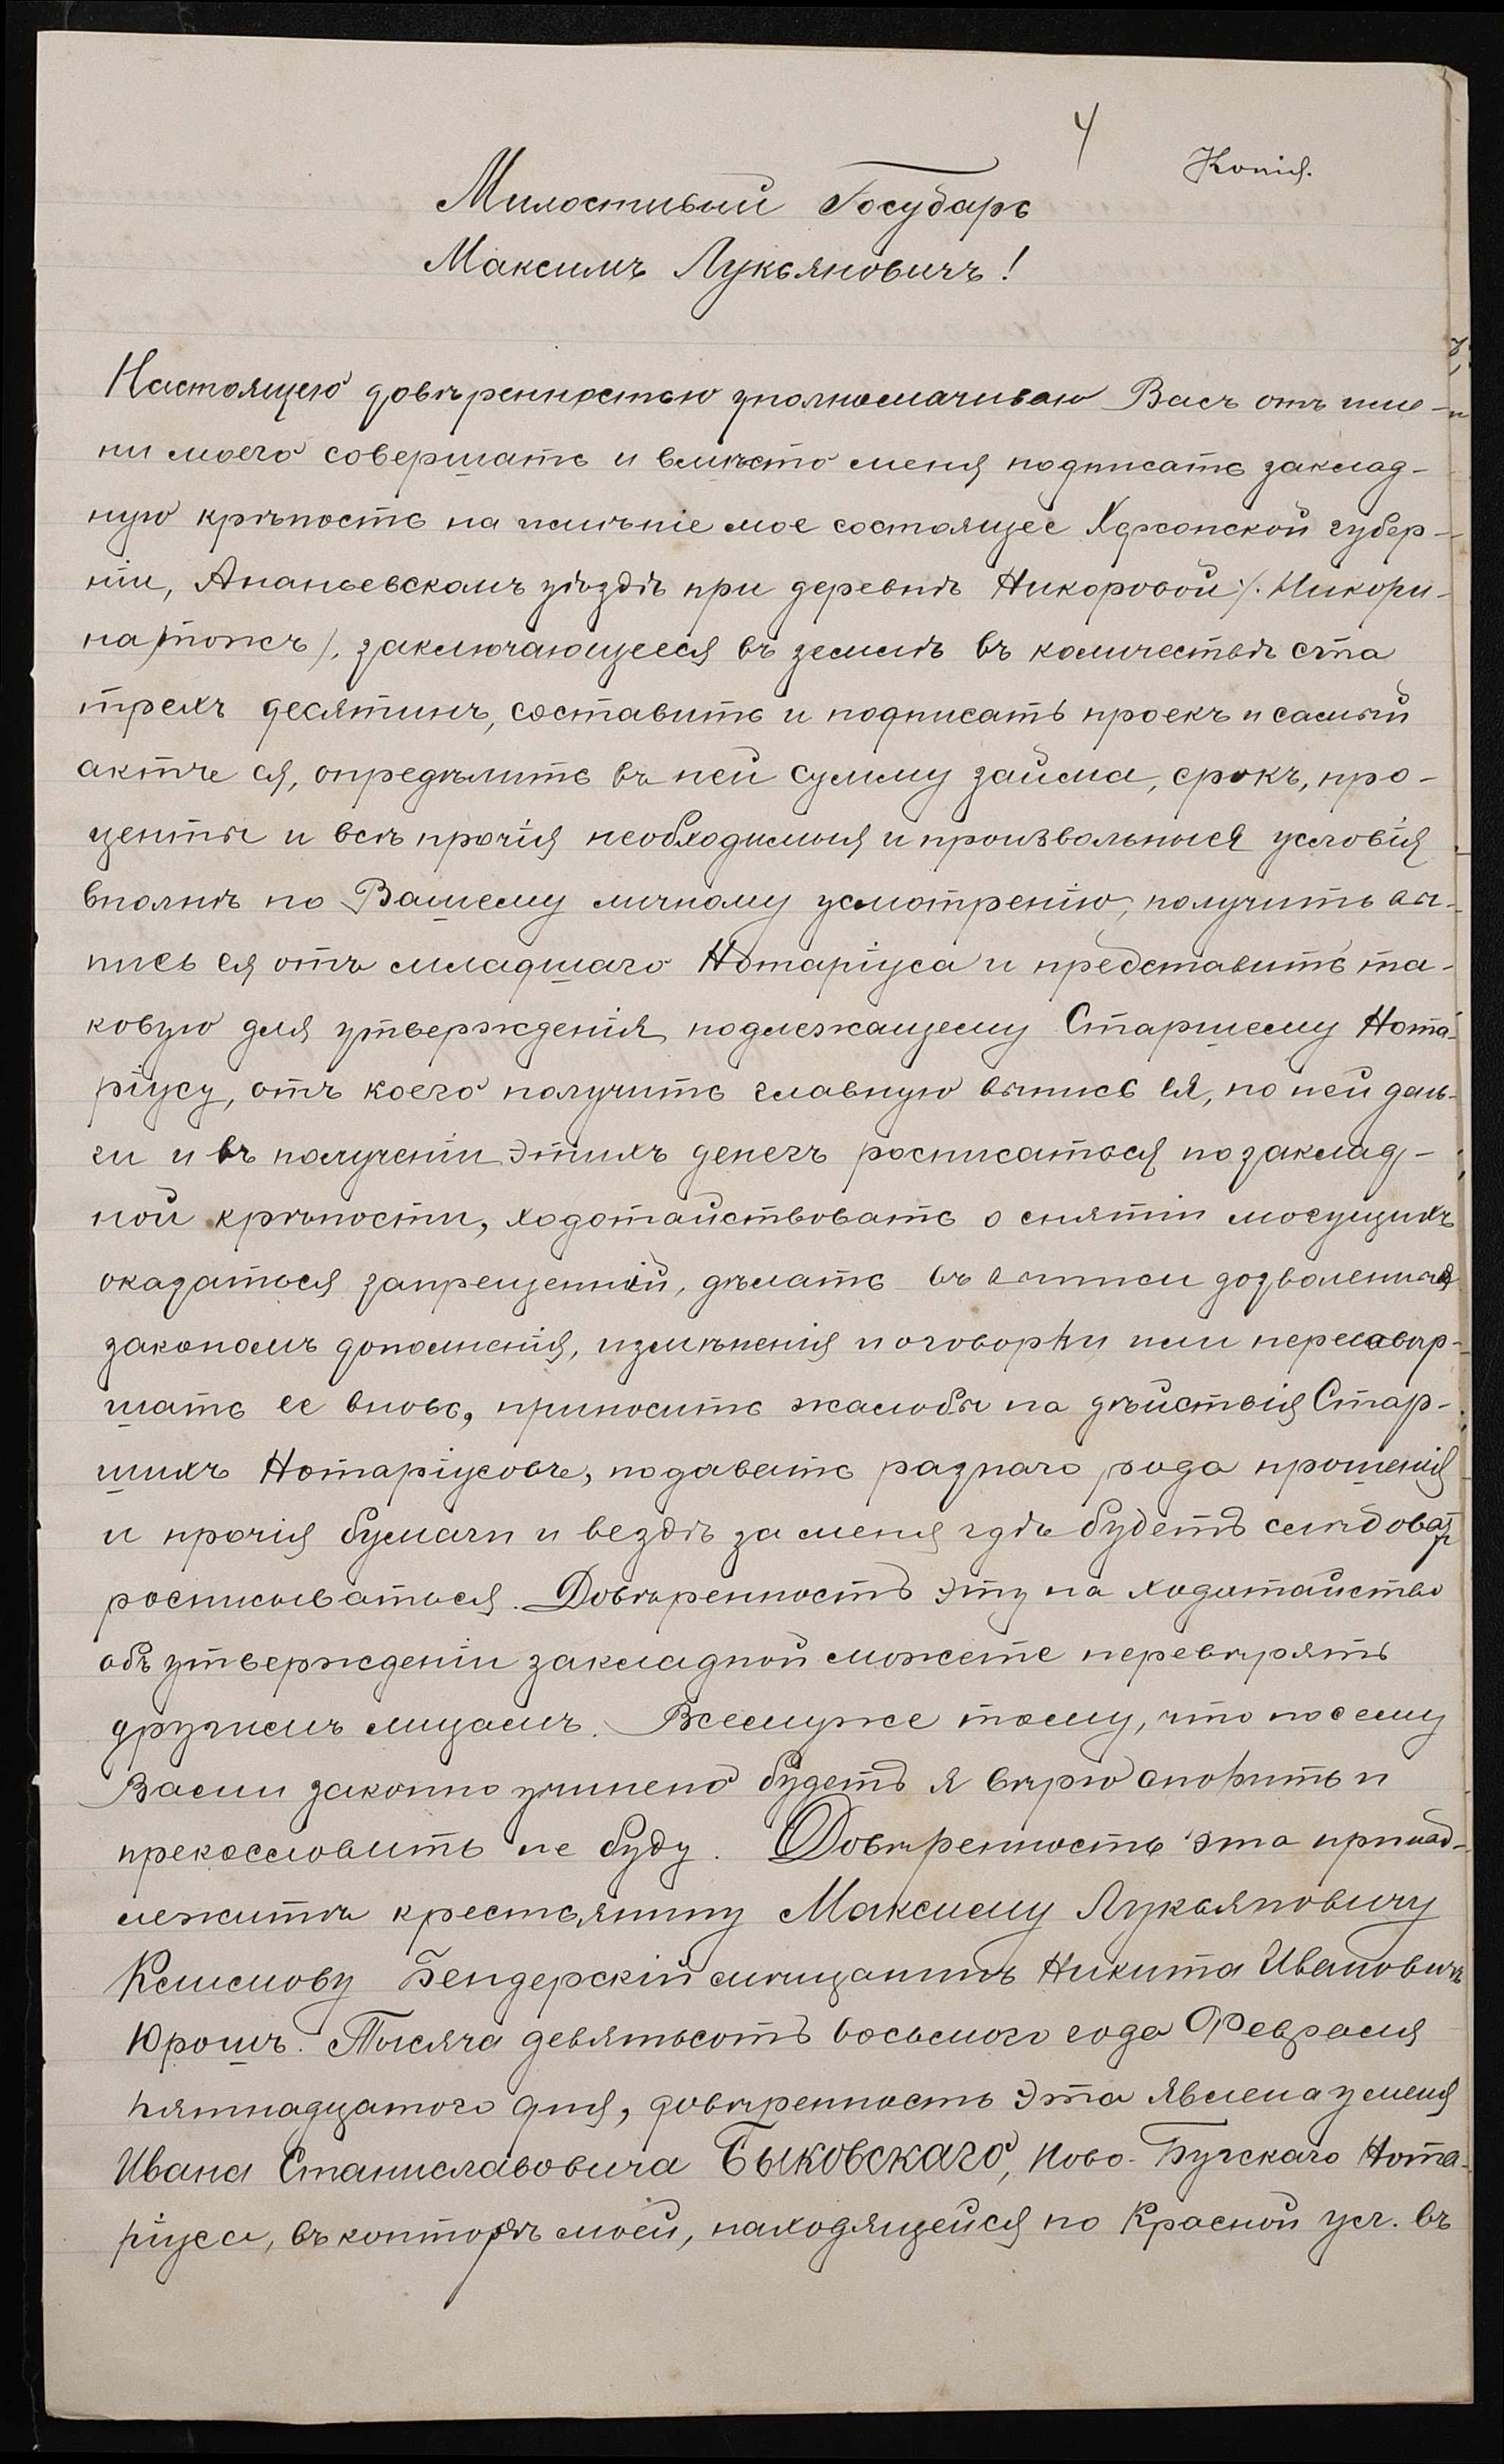 4
Копія.
Милостивый Государь
Максимъ Лукьяновичъ!
Настоящею довѣренностью уполномачиваю Васъ отъ име-
ни моего совершать и вмѣсто меня подписать заклад-
ную крѣпость на имѣніе мое состоящее Херсонской губер-
ніи, Ананьевскомъ уѣздѣ при деревнѣ Никоровой /. Никори-
на тожъ /. заключающееся въ землѣ въ количествѣ ста
трехъ десятинъ, составить и подписать проекъ и самый
актъ ея, опредѣлить въ ней сумму займа, срокъ, про-
центы и всѣ прочія необходимыя и произвольныя условія
вполнѣ по Вашему личному усмотренію, получить вы-
пись ея отъ младшаго Нотаріуса и представить та-
ковую для утвержденія подлежащему Старшему Нота-
ріусу, отъ коего получить главную выпись ея, по ней день-
ги и въ полученіи этихъ денегъ росписаться по заклад-
ной крѣпости, ходотайствовать о снятіи могущихъ
оказаться запрещеній, дѣлать въ выписи дозволенныя
закономъ дополненія, измѣненія и оговорки или пересовер-
шать ее вновь, приносить жалобы на дѣйствія Стар-
шихъ Нотаріусовъ, подавать разнаго рода прошенія
и прочія бумаги и вездѣ за меня гдѣ будетъ слѣдовать
росписываться. Довѣренность эту на ходатайство
объ утвержденіи закладной можете перевѣрять
другимъ лицамъ. Всему же тому, что по сему
Вами законно учинено будетъ я вѣрю спорить и
прекословить не буду. Довѣренность эта принад-
лежитъ крестьянину Максиму Лукьяновичу
Климову Бендерскій мѣщанинъ Никита Ивановичъ
Юрошъ. Тысяча девятьсотъ восьмого года Февраля
пятнадцатого дня, довѣренность эта явлена у меня
Ивана Станиславовича Быковскаго, Ново-Бугскаго Нота-
ріуса, въ конторѣ моей, находящейся по Красной ул. въ